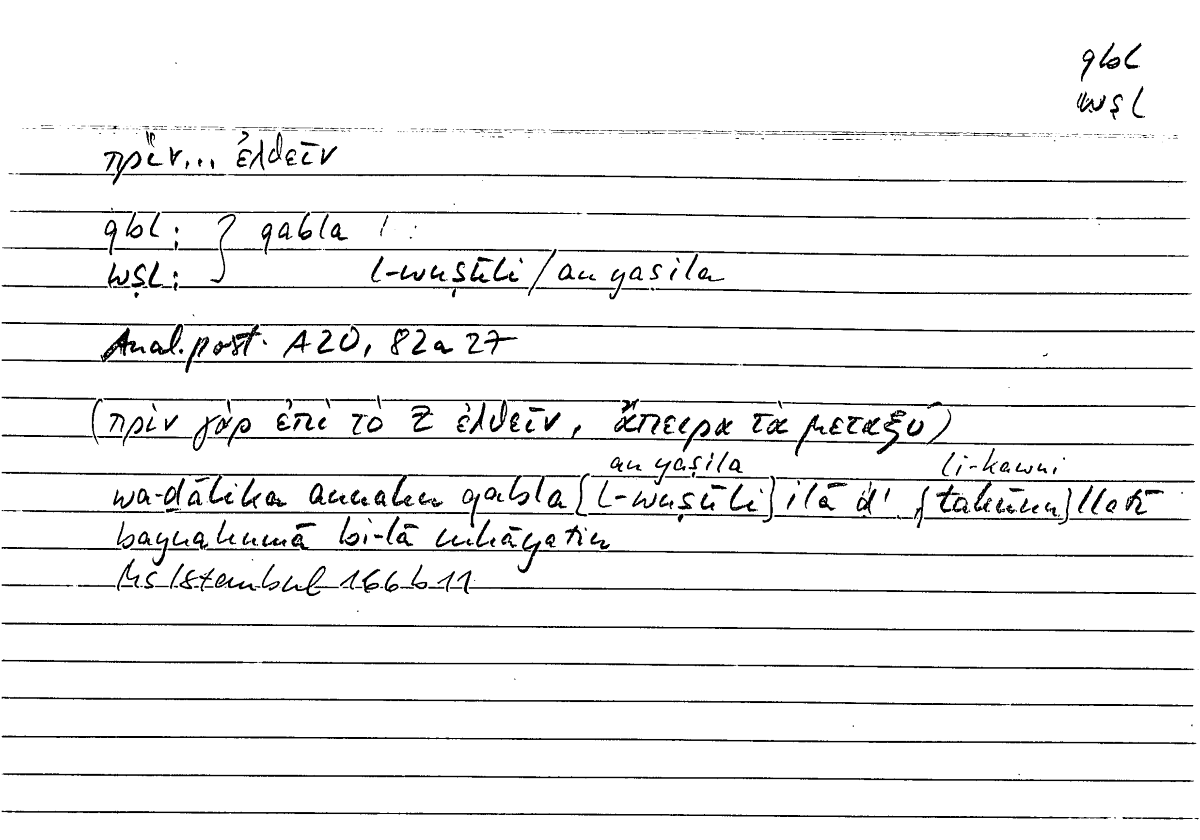 qbl
wṣl
πρὶν... ἐλθεῖν
qbl: } qabla
wṣl: l-wuṣūli / an yaṣila
Anal. post. A20, 82a 27
(πρὶν γὰρ ἐπὶ τὸ Z ἐλθεῖν, ἄπειρα τὰ μεταξύ)
an yaṣila li-kawni
wa-ḏālika annahu qabla {l-wuṣūli} ilā {takūnu} llatī
baynahumā bi-lā nihāyatin
Ms Istanbul 166b11